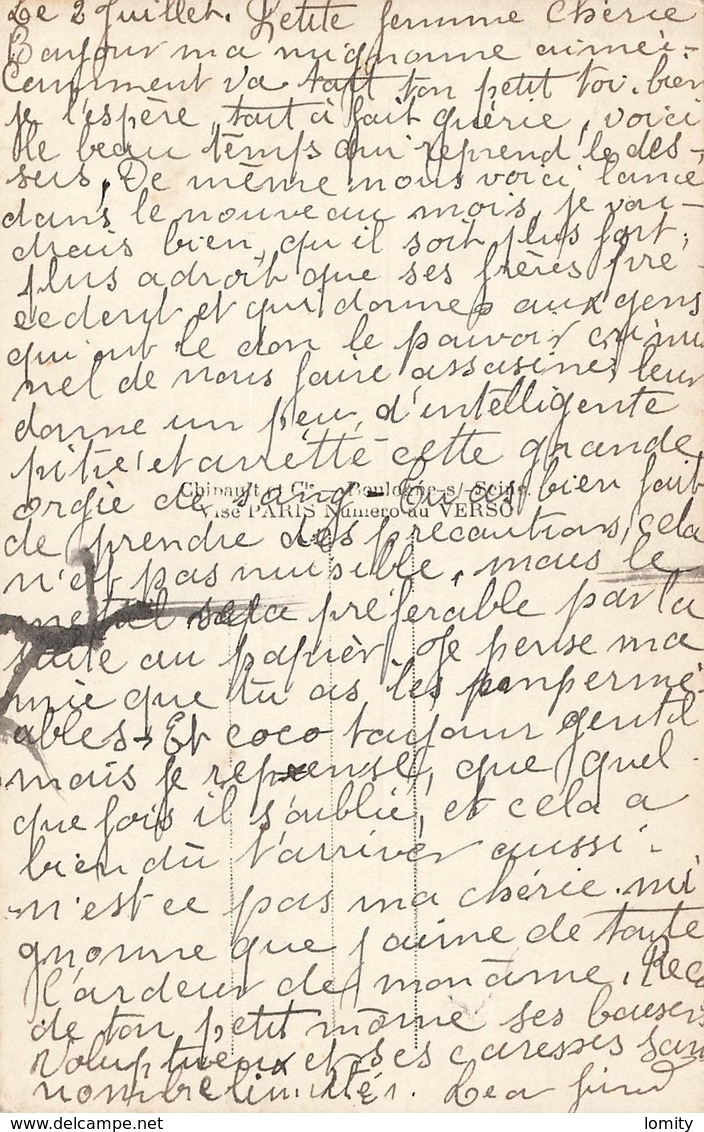 Le 2 Juillet. Petite femme Chérie
Bonjour ma mignonne aimée -
Comment va tout ton petit toi. bien
je l'espère, tout à fait guérie, voici
le beau temps qui reprend le des-
sus, De même nous voici lancé
dans le nouveau mois, je vou-
drais bien, qu'il soit plus fort,
plus adroit que ses frères pré-
cedent et qui donnes aux gens
qui ont le don le pouvoir crimi
nel de nous faire assasiner leur
donne un peu, d'intelligente
pitié et arretté cette grande
orgie de sang - Tu as bien fait
Chipault et Cie Boulogne-s/-Seine.
Visé PARIS Numéro au VERSO
de prendre des précautions, cela
n'est pas nuisible, mais le
metal sera préferable par la
suite au papier. Je pense ma
mie que tu as les
ables - Et coco toujours gentil
mais je repense, que quel-
que fois il s'oublie, et cela a
bien dû t'arriver aussi -
n'est ce pas ma chérie. mi
gnonne que j'aime de toute
l'ardeur de mon âme. Reco
de ton petit môme ses baisers
voluptueux et ses caresses san
nombre limités.
lomity